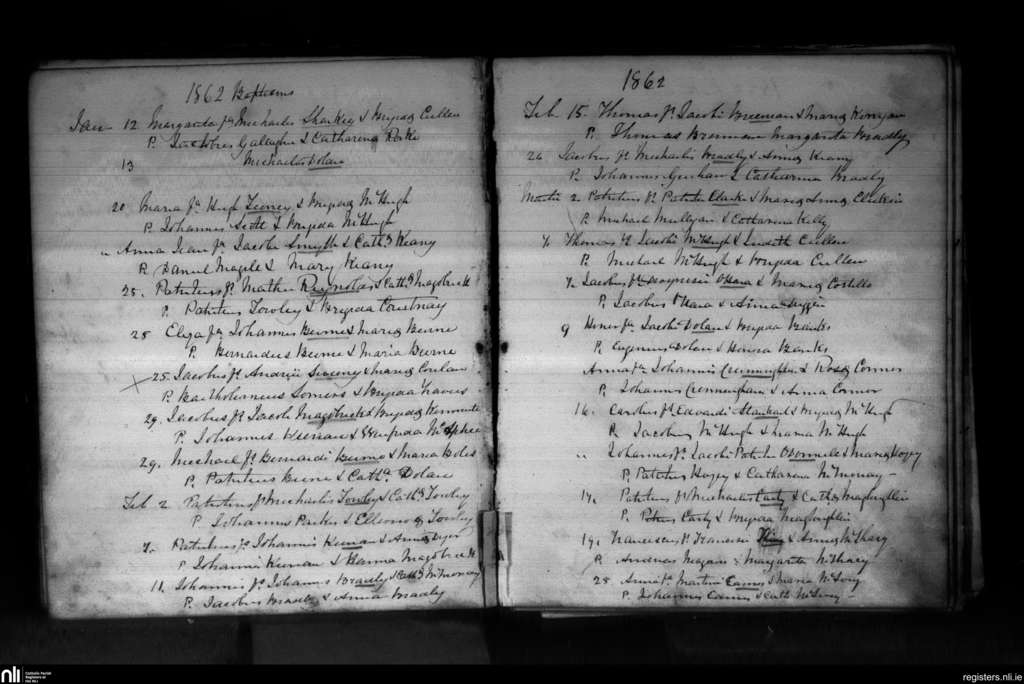 1862 Baptisms
Jan 12 Margarita fa Michaelis Sharkey & Brigida Cullen
P. Jacobus Gallagher & Catharina
13 Michaelis Dolan
20 Maria fa Hugh & Brigida McHugh
P. Johannes Scott & Brigida McHugh
" Anna Jean fa Jacobi Smyth & Cath. Keany
P. Daniel Magile & Mary Keany
25. Patritius f. Mathei Reynolds & Cath
P. Patritius Towley & Brigida Courtnay
25 Eliza fa Johannis Beirne & Maria Beirne
P. Bernardus Beirne & Maria Beirne
25. Jacobus f. Andreae Sweeney & Maria Conlan
P. Bartholomeus Somers & Brigida Travers
29. Jacobus f. Jacobi & Brigida
P. Johannes Keenan & Winifreda
29. Michael f. Bernardi Beirne & Maria Boles
P. Patritius Beirne & Catha. Dolan
Feb 2 Patritius f. Michaelis Towley & Cath. Towley
P. Johannes Parker & Elleonora Towley
7. Patritius f. Johannis Keenan & Anna Dyer
P. Johannis Keenan & Hanna
11. Johannis f. Johannis Bradly & Cath McMorrow
P. Jacobus Bradly & Anna Bradly
1862
Feb 15. Thomas f. Jacobi Breeman & Maria Kerrigan
P. Thomas Brennan Margarita Bradly
26 Jacobus f. Michaelis Bradly & Anna Keany
P. Johannes & Catharina Bradly
2. Patritius f. Patritii Clarke & Maria Anna
P. Michael Mulligan & Catharina Kelly
7. Thomas f. Jacobi McHugh & Judith Cullen
P. Michael McHugh & Brigida Cullen
7. Jacobus f. OHara & Maria Costello
P. Jacobus OHara & Anna
9 fa Jacobi Dolan & Brigida Banks
P. Eugenius Dolan & Honora Banks
Anna fa Johannis Cunningham & Rosa Connor
P. Johannes Cunningham & Anna Connor
16. Carolus f. Edwardi & Brigida McHugh
P. Jacobus McHugh & Maria McHugh
" Johannes f. Jacobi Patritii & Maria Hoppy
P. Patritius Hoppy & Catharina McMorray
17. Patritius f. Michaelis Carty & Cath. Magloughlin
P. Petrus Carty & Brigida Magloughlin
19. Franciscus f. Francisci & Anna McSharry
P. Andreas Maguire & Margarita McSharry
25. Anna fa Martini & Maria McGovy
P. Johannes & Cath McGovy
nli Catholic Parish Registers at the NLI
registers.nli.ie